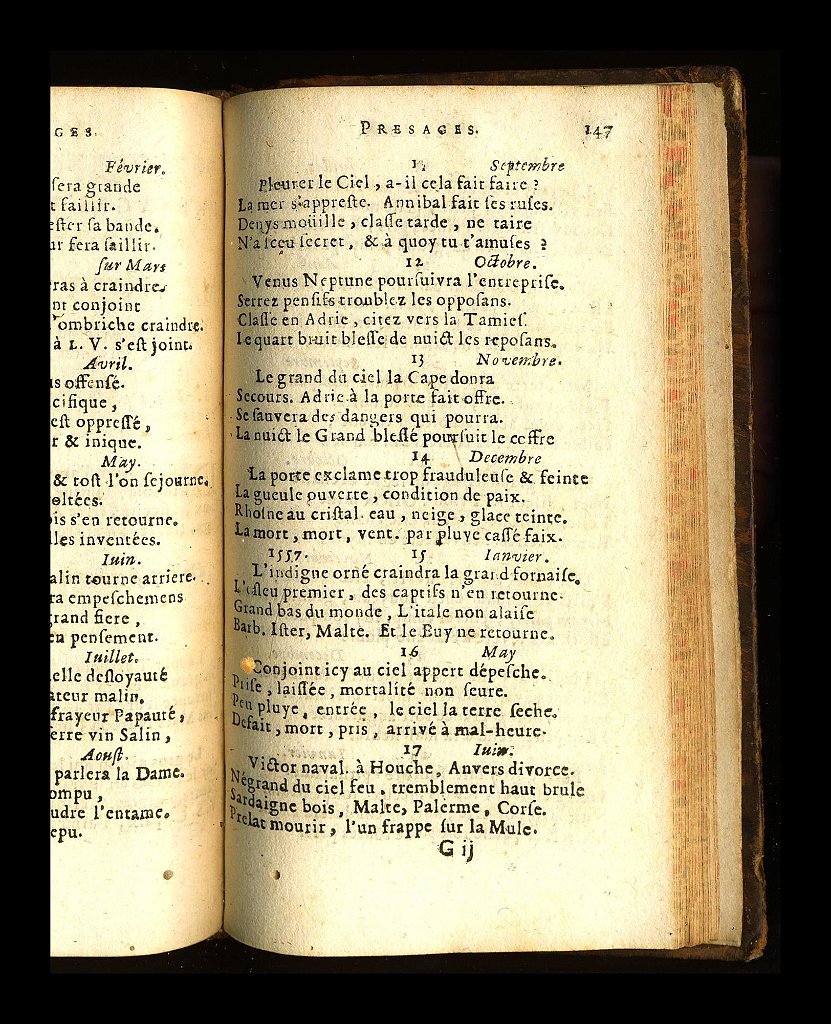 GES.
Février.
sera grande
t faillir.
ester sa bande.
ur fera saillir.
sur Mars
ras à craindre.
nt conjoint
l'ombriche craindre.
à L. V. s'est joint.
Avril.
us offensé.
cifique,
est oppressé,
r & inique.
May.
& tost l'on sejourne.
oltées.
ois s'en retourne.
lles inventées.
Iuin.
alin tourne arriere.
ra empeschemens
grand fiere,
en pensement.
Iuillet.
elle desloyauté
ateur malin.
frayeur Papauté,
erre vin Salin,
Aoust.
parlera la Dame.
ompu,
udre l'entame.
epu.
PRESAGES. 147
11 Septembre
Pleurer le Ciel, a-il cela fait faire ?
La mer s'appreste. Annibal fait ses ruses.
Denys moüille, classe tarde, ne taire
N'a sçeu secret, & à quoy tu t'amuses ?
12 Octobre.
Venus Neptune poursuivra l'entreprise.
Serrez pensifs troublez les opposans.
Classe en Adrie, citez vers la Tamies.
Le quart bruit blesse de nuict les reposans.
13 Novembre.
Le grand du ciel la Cape donra
Secours. Adrie à la porte fait offre.
Se sauvera des dangers qui pourra.
La nuict le Grand blessé poursuit le coffre
14 Decembre
La porte exclame trop frauduleuse & feinte
La gueule ouverte, condition de paix.
Rhosne au cristal eau, neige, glace teinte.
La mort, mort, vent. par pluye cassé faix.
1557. 15 Ianvier.
L'indigne orné craindra la grand fornaise.
L'esleu premier, des captifs n'en retourne.
Grand bas du monde, L'itale non alaise
Barb. Ister, Malte. Et le Buy ne retourne.
16 May
Conjoint icy au ciel appert dépesche.
Prise, laissée, mortalité non seure.
Peu pluye, entrée, le ciel la terre seche.
Defait, mort, pris, arrivé à mal-heure.
17 Iuin.
Victor naval. à Houche, Anvers divorce.
Négrand du ciel feu. tremblement haut brule
Sardaigne bois, Malte, Palerme, Corse.
Prelat mourir, l'un frappe sur la Mule.
G ij